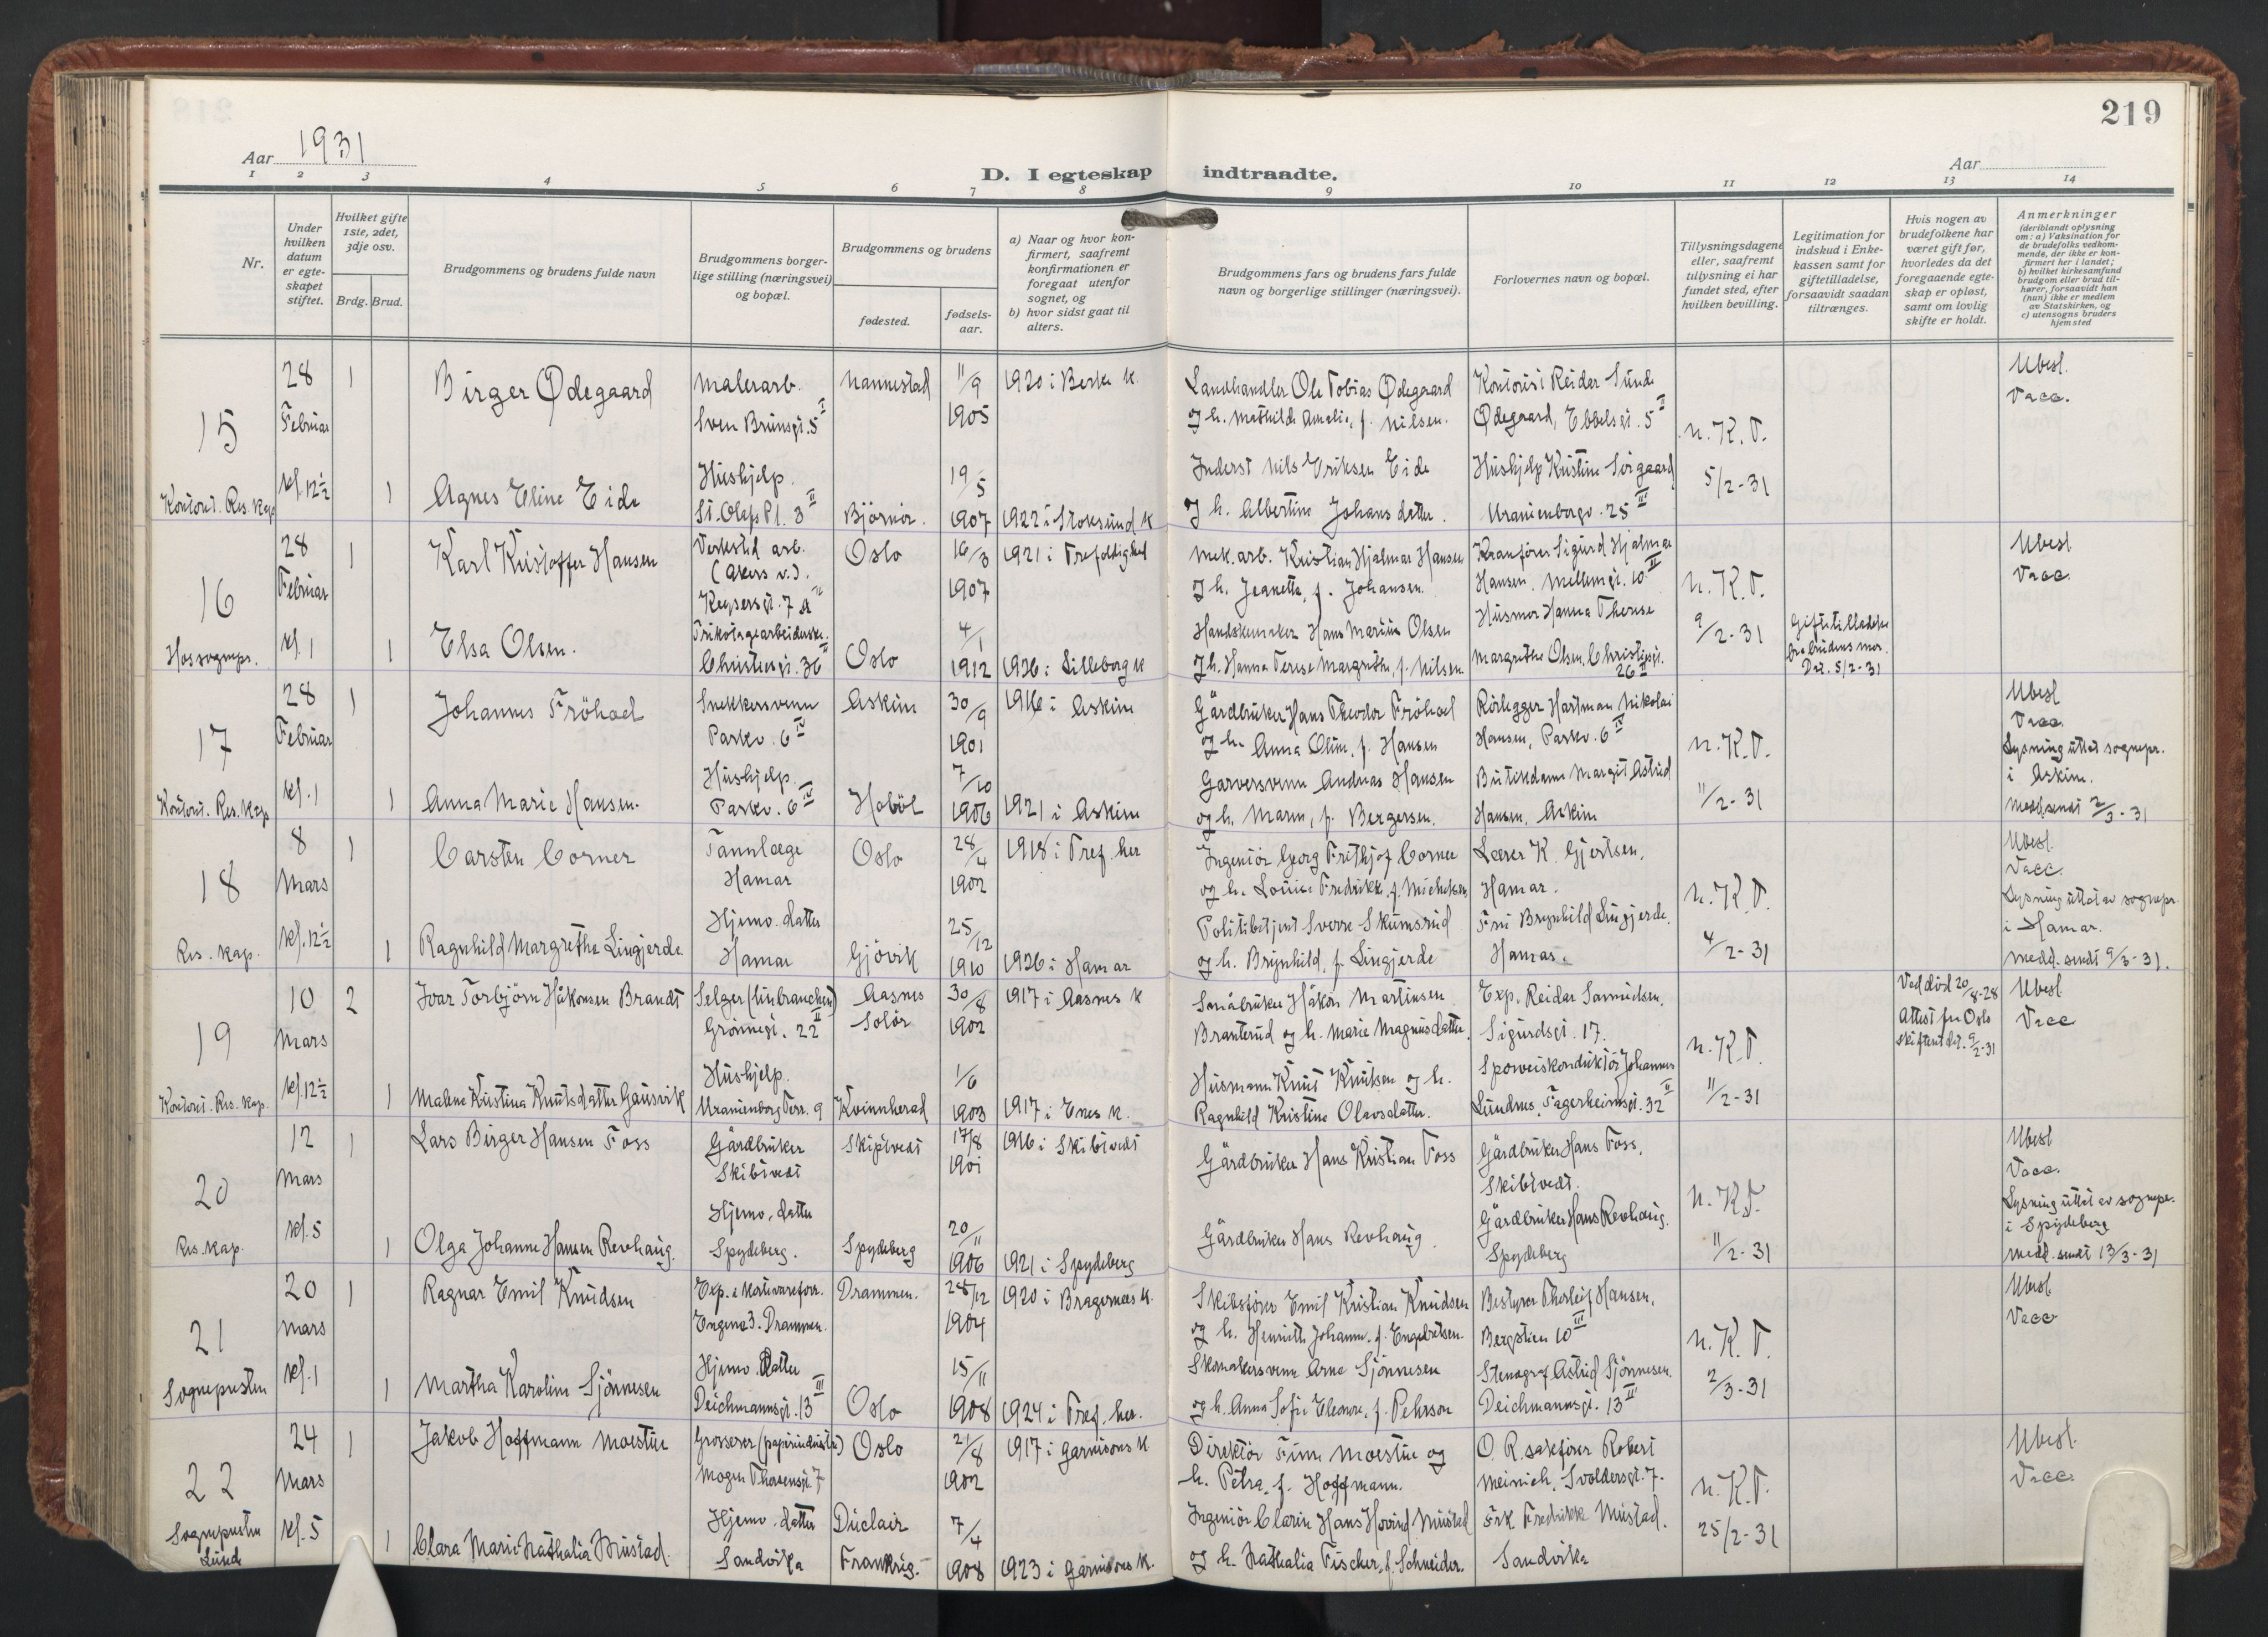 219
Aar 1931
Aar
D. I egteskap indtraadte.
1 2 3 4 5 6 7 8 9 10 11 12 13 14
Nr.
Under hvilken datum er egteskapet stiftet.
Hvilket gifte 1ste, 2det, 3dje osv.
Brdg. Brud.
Brudgommens og brudens fulde navn
Brudgommens borgerlige stilling (næringsvei) og bopæl.
Brudgommens og brudens
fødested.
fødselsaar.
a) Naar og hvor konfirmert, saafremt konfirmationen er foregaat utenfor sognet, og
b) hvor sidst gaat til alters.
Brudgommens fars og brudens fars fulde navn og borgerlige stillinger (næringsvei).
Forlovernes navn og bopæl.
Tillysningsdagene eller, saafremt tillysning ei har fundet sted, efter hvilken bevilling.
Legitimation for indskud i Enkekassen samt for giftetilladelse, forsaavidt saadan tiltrænges.
Hvis nogen av brudefolkene har været gift før, hvorledes da det foregaaende egteskap er opløst, samt om lovlig skifte er holdt.
Anmerkninger (deriblandt oplysning om: a) Vaksination for de brudefolks vedkommende, der ikke er konfirmert her i landet; b) hvilket kirkesamfund brudgom eller brud tilhører, forsaavidt han (hun) ikke er medlem av Statskirken, og c) utensogns bruders hjemsted
15 28 Februar kl. 12½ Kontoret. Res. kap
1 Birger Ødegaard Malerarb. Sven Brunsgt. 5 I Nannestad 11/9 1905 1920 i Beske K. Landhandler Ole Tobias Ødegaard og h. Mathilde Amalie, f. Nilsen. Kontorist Reidar Sunde Ødegaard, Ebbelsgt. 5 II n. K. T. 5/2-31 Ubesl. Vacc.
1 Agnes Eline Eide Hushjelp. St. Olafs Pl. 3 II Bjørnør. 19/5 1907 1922 i Stoksund K Inderst Nils Eriksen Eide og h. Albertine Johansdatter. Hushjelp Kristine Sørgaard Uranienborgv. 25 III
16 28 Februar kl. 1 Hos sognepr.
1 Karl Kristoffer Hansen Verksted arb. (Akers v.). Keysersgt. 7 a IV Oslo 16/3 1907 1921 i Trefoldighed Mek. arb. Kristian Hjalmar Hansen og h. Jeanette, f. Johansen. Kranfører Sigurd Hjalmar Hansen. Mellemgt. 10 II n. K. T. 9/2-31 Ubesl. Vacc.
1 Elsa Olsen. Trikotagearbeiderske. Christiesgt. 36 II Oslo 4/1 1912 1926 i Lilleborg K Handskemaker Hans Marius Olsen og h. Hanna Terese Margrethe, f. Nilsen Husmor Hanna Therese Margrethe Olsen, Christiesgt. 26 II Giftetilladelse fra brudens mor. Dat. 5/2-31
17 28 Februar kl. 1 Kontoret. Res. kap
1 Johannes Fröhael Snekkersvenn Parkv. 6 IV Askim 30/9 1901 1916 i Askim Gårdbruker Hans Theodor Fröhael og h. Anna Oline, f. Hansen Rørlegger Hartman Nikolai Hansen, Parkv. 6 IV n. K. T. 11/2-31 Ubesl Vacc. Lysning uttat sognepr. i Askim. Medd. sendt 2/3-31
1 Anna Marie Hansen. Hushjelp. Parkv. 6 IV Hobøl 7/10 1906 1921 i Askim Garversvenn Andreas Hansen og h. Maren, f. Bergersen. Butikdame Margit Astrid Hansen, Askim
18 8 Mars kl. 12½ Res. kap.
1 Carsten Corner Tannlæge Hamar Oslo 28/4 1902 1918 i Tref. her Ingeniør Georg Frithjof Corner og h. Louise Fredrikke f. Michelsen Lærer K. Gjertsen, Hamar. n. K. T. 4/2-31 Ubesl. Vacc. Lysning uttat av sognepr. i Hamar. Medd. sendt 9/3-31.
1 Ragnhild Margrethe Lingjerde Hjemv. datter Hamar Gjøvik 25/12 1910 1926 i Hamar Politibetjent Sverre Skumsrud og h. Brynhild, f. Lingjerde Fru Brynhild Lingjerde, Hamar.
19 10 Mars kl. 12½ Kontoret. Res. kap.
2 Ivar Torbjørn Håkonsen Brandt Selger (linbranchen) Grønnegt. 22 II Aasnes Solør 30/8 1902 1917 i Aasnes K Småbruker Håkon Martinsen Branterud og h. Marie Magnusdatter. Exp. Reidar Samuelsen. Sigurdsgt. 17. n. K. T. 11/2-31 Ved død 20/8-28 Attest fra Oslo skifteret dat. 9/2-31 Ubesl Vacc
1 Malene Kristina Knutsdatter Gausvik Hushjelp. Uranienborg Terr. 9 Kvinnherad 1/6 1903 1917 i Enes K. Husmann Knut Knutsen og h. Ragnhild Kristine Olavsdatter. Sporveiskonduktør Johannes Lundnes, Fagerheimsgt. 32 II
20 12 Mars kl. 5 Res. kap.
1 Lars Birger Hansen Foss Gårdbruker Skibtvedt Skiptvedt 17/8 1901 1916 i Skibtvedt Gårdbruker Hans Kristian Foss Gårdbruker Hans Foss, Skibtvedt. n. K. T. 11/2-31 Ubesl Vacc. Lysning uttat av sognepr. i Spydeberg Medd. sendt 13/3-31
1 Olga Johanne Hansen Revhaug. Hjemv. datter Spydeberg. Spydeberg 20/11 1906 1921 i Spydeberg Gårdbruker Hans Revhaug. Gårdbruker Hans Revhaug. Spydeberg
21 20 Mars kl. 1 Sognepresten
1 Ragnar Emil Knudsen Exp. i kortevareforr. Engene 3. Drammen. Drammen. 28/12 1904 1920 i Bragernees K. Skibsfører Emil Kristian Knudsen og h. Henriette Johanne, f. Engebretsen. Bestyrer Thorleif Hansen, Bergstien 10 III n. K. T. 2/3-31 Ubesl. Vacc
1 Martha Karoline Sjönnesen Hjemv. Datter Deichmannsgt. 13 III Oslo 15/11 1908 1924 i Tref. her. Skomakersvenn Arne Sjönnesen og h. Anna Sofie Eleonore, f. Pehrson Stenograf Astrid Sjönnesen. Deichmannsgt. 13 II
22 24 Mars kl. 5 Sognepresten Lunde
1 Jakob Hoffmann Moestue Grosserer (papirindustri) Mogens Thorsensgt. 7 Oslo 21/8 1902 1917 i Garnisons K Direktør Finn Moestue og h. Petra, f. Hoffmann. O. R. sakfører Robert Meinich, Svoldersgt. 7. n. K. T. 25/2-31 Ubesl. Vacc.
1 Clara Marie Nathalia Mustad. Hjemv. datter Sandvika Duclair Frankrig. 7/4 1908 1923 i Garnisons K. Ingeniør Clarin Hans Hovind Mustad og h. Nathalia Fischer, f. Schneider. Frk Fredrikke Mustad. Sandvika